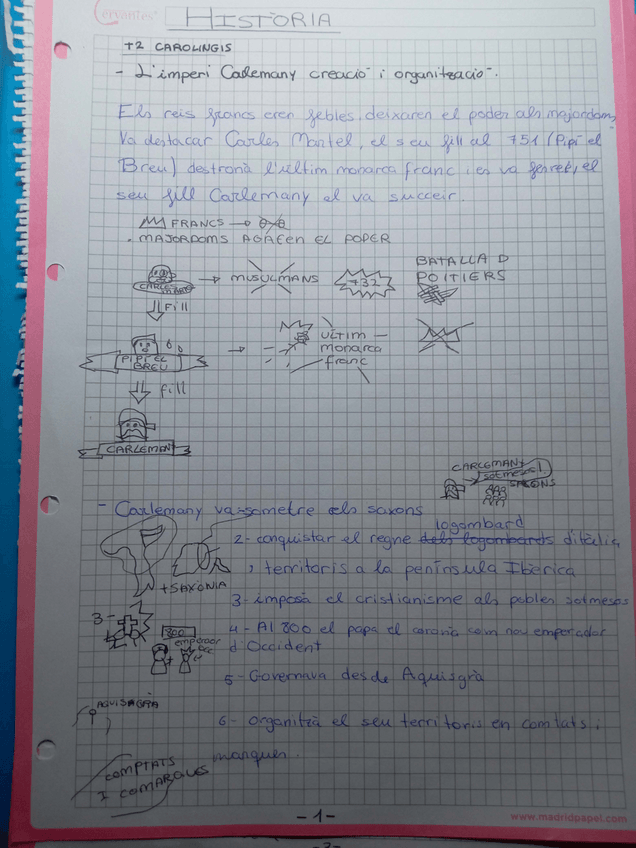 Cervantes
HISTÒRIA
T2 CAROLINGIS
- L'imperi Carlemany creació i organització.
Els reis francs eren febles, deixaren el poder als majordoms
Va destacar Carles Martel, el seu fill al 751 (Pipí el
Breu) destronà l'últim monarca franc i es va fer rei, el
seu fill Carlemany el va succeir.
FRANCS →
. MAJORDOMS AGAFEN EL PODER
CARLES MARTEL → MUSULMANS 732 BATALLA D
POITIERS
Fill
PIPI EL
BREU → ULTIM
monarca
franc
fill
CARLEMANY
CARLEMANY
sotmesos!
SAXONS
- Carlemany va sometre els saxons
logombard
2- conquistar el regne dels logombards d'itàlia
i territoris a la península Ibèrica
+ SAXÒNIA
3- imposà el cristianisme als pobles sotmesos
3-
4- Al 800 el papa el coronà com nou emperador
d'Occident
800
emperador
occ
5- Governava desde Aquisgrà
AQUISGRÀ
6- organitzà el seu territoris en comtats i
marques.
COMPTATS
I COMARQUES
- 1 -
www.madridpapel.com